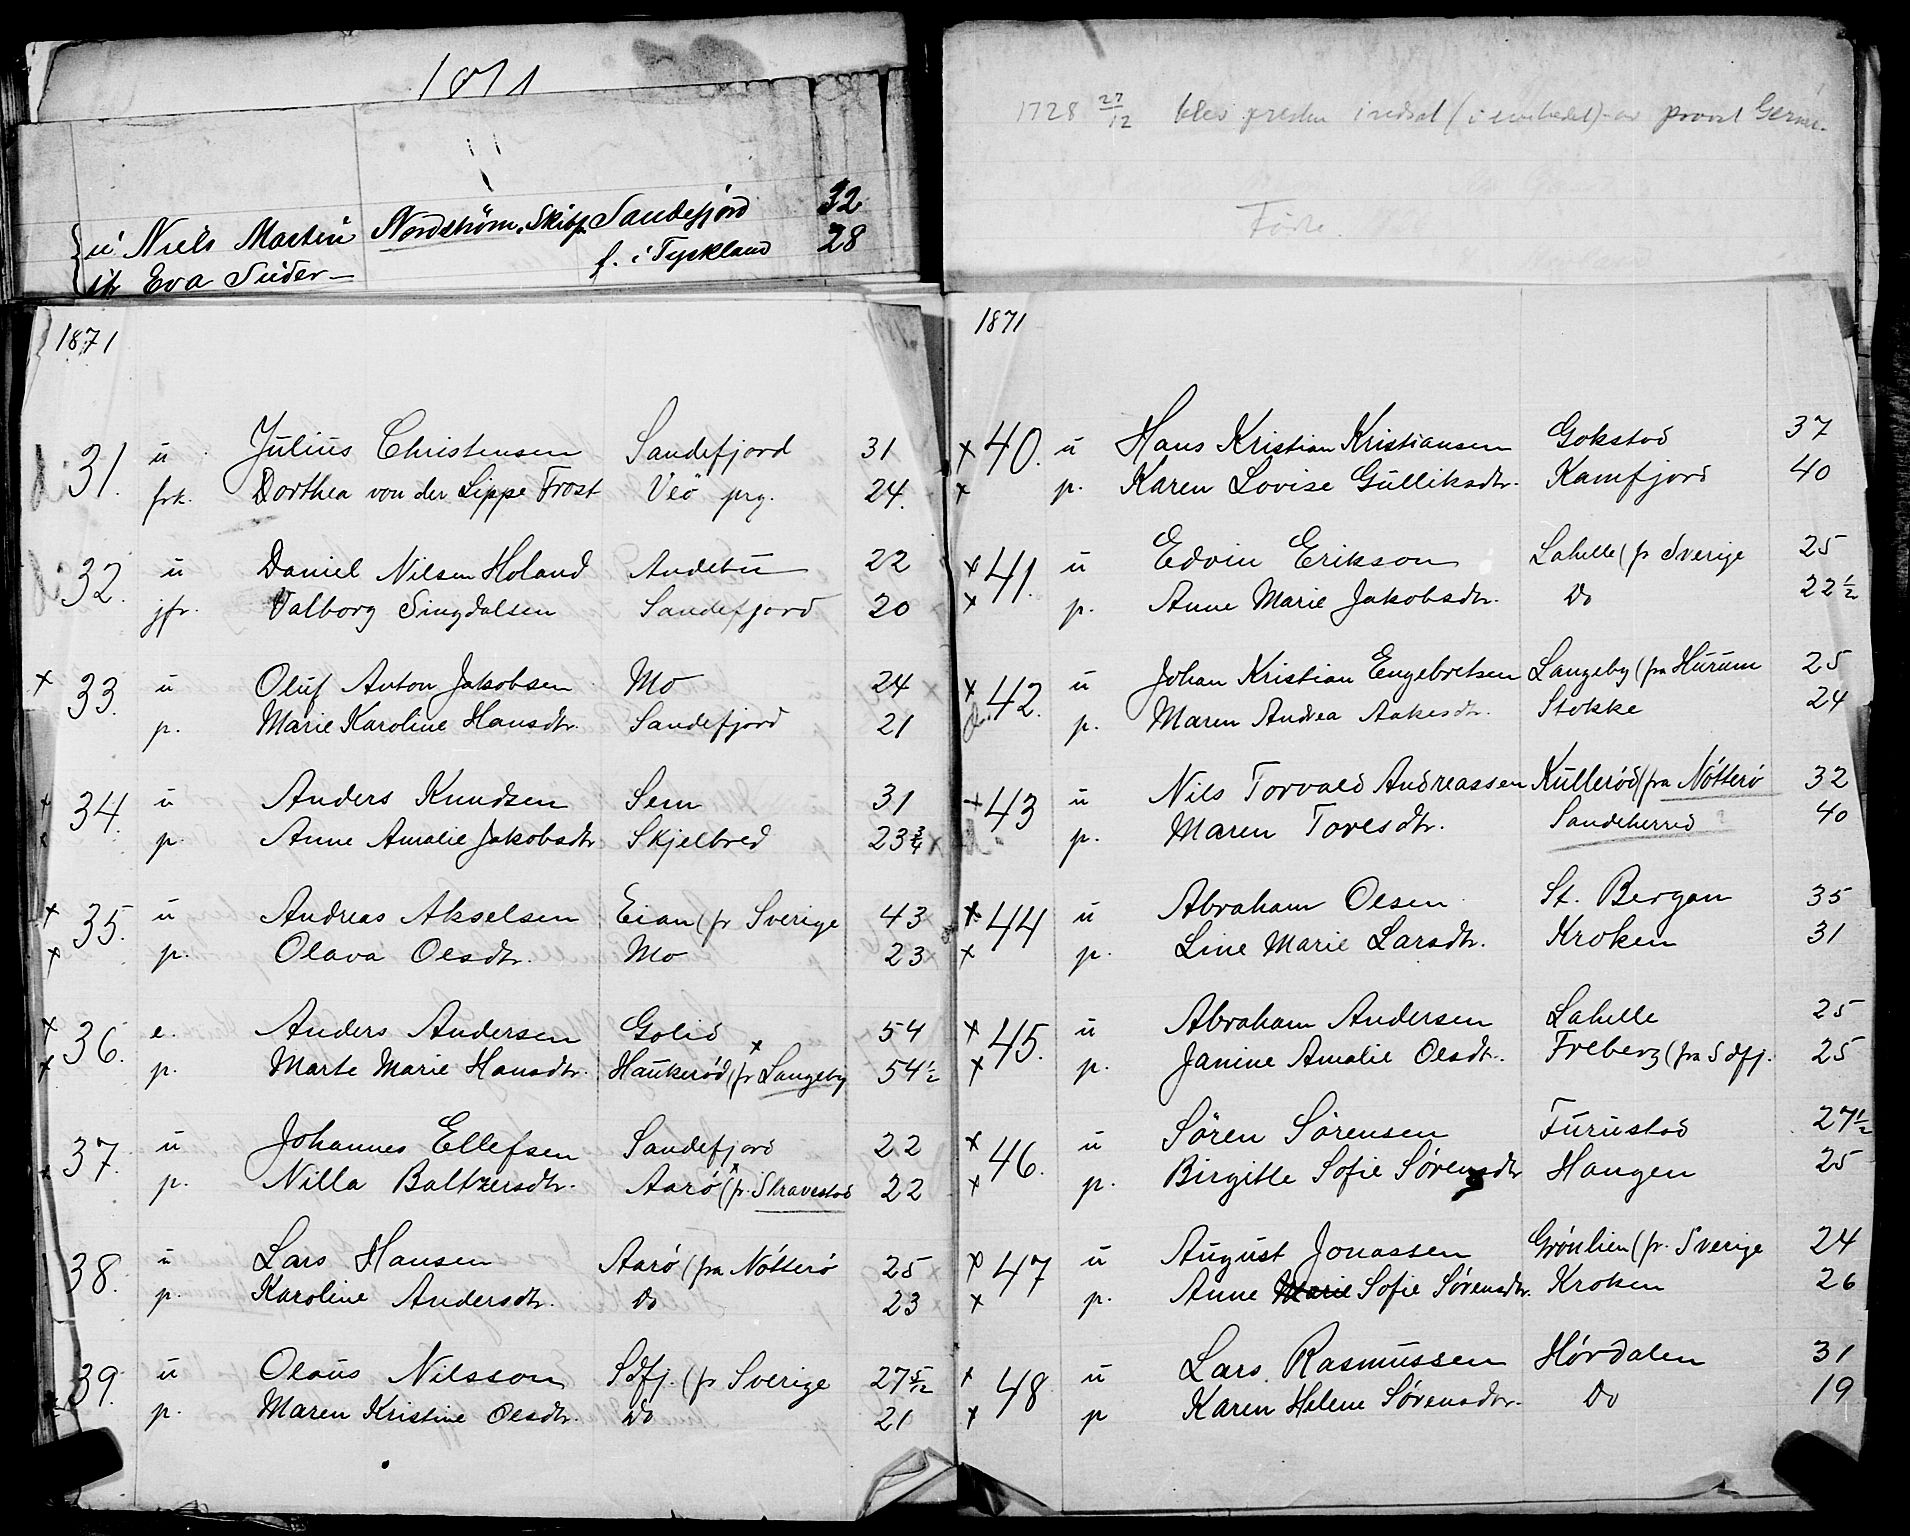 1871
u Niels Martin Nordström, Skibsf. Sandefjord 32
jfr Eva Suder — f. i Tyskland 28
1871
31. u Julius Christensen Sandefjord 31
frk. Dorthea von der Lippe Frost Veö prg. 24.
32. u Daniel Nilsen Holand Andebu 22
jfr. Valborg Singdalsen Sandefjord 20
x 33. u Oluf Anton Jakobsen Mo 24
p. Marie Karoline Hansdtr. Sandefjord 21
x 34. u Anders Knudsen Sem 31
x p. Anne Amalie Jakobsdtr Skjelbred 23 3/4
x 35. u Andreas Akselsen Eian (fr Sverige 43
x p. Olava Olsdtr. Mo 23
x 36. e. Anders Andersen Golid 54
x p. Marte Marie Hansdtr. Haukerød (fr x Langeby 54 1/2
37. u Johannes Ellefsen Sandefjord 22
x p. Nilla Baltzersdtr. Aarø (fr. x Skravestad 22
38. u Lars Hansen Aarø (fra Nøtterø 25
p. Karoline Andersdtr. Do 23
39. u Olaus Nilsson Sdfj. (fr Sverige 27 5/12
p. Maren Kristine Olsdtr. Do 21
1728 27/12 blev presten indsat ( ) av provst
Fødte.
1871
x 40. u Hans Kristian Kristiansen Gokstad 37
x p. Karen Lovise Gulliksdtr. Kamfjord 40
x 41. u Edvin Erikson Lahelle (fr Sverige 25
x p. Anne Marie Jakobsdtr. Do 22 1/2
x 42. u Johan Kristian Engebretsen Langeby (fra Hurum 25
p. Maren Andrea Aakesdtr. Stokke 24
x 43 u Nils Torvald Andreassen Kullerød (fra Nøtterø 32
p. Maren Toresdtr. Sandeherred ? 40
x 44 u Abraham Olsen St. Bergan 35
x p. Line Marie Larsdtr. Kroken 31
x 45. u Abraham Andersen Lahelle 25
x p. Janine Amalie Olsdtr. Freberg (fra Sdfj. 25
x 46. u Søren Sørensen Furustad 27 1/2
x p. Birgitte Sofie Sørensdtr Haugen 25
x 47 u August Jonassen Grønlien (fr. Sverige 24
x p. Anne Marie Sofie Sørensdtr. Kroken 26
x 48 u Lars Rasmussen Hørdalen 31
x p Karen Helene Sørensdtr. Do 19